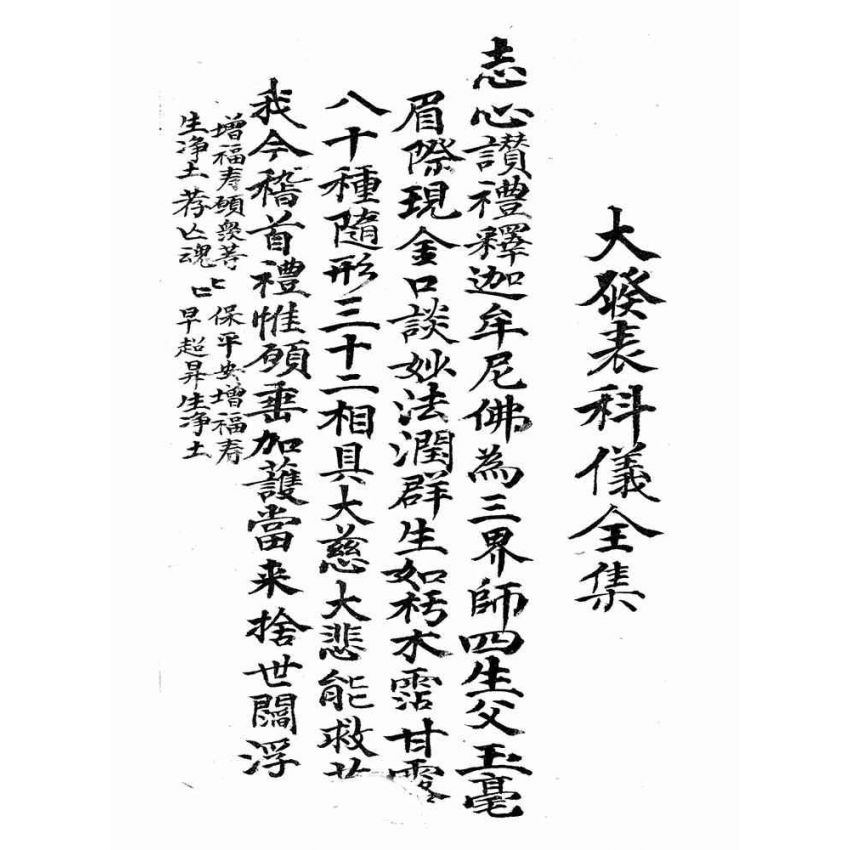 大發表科儀全集
志心讃禮釋迦牟尼佛為三界師四生父玉毫
眉際現金口談妙法潤群生如朽木霑甘
八十種隨形三十二相具大慈大悲能救
我今稽首禮惟願垂加護當来捨世閻浮
增福寿願衆等 保平安增福寿
生净土荐亡魂 早超昇生净土